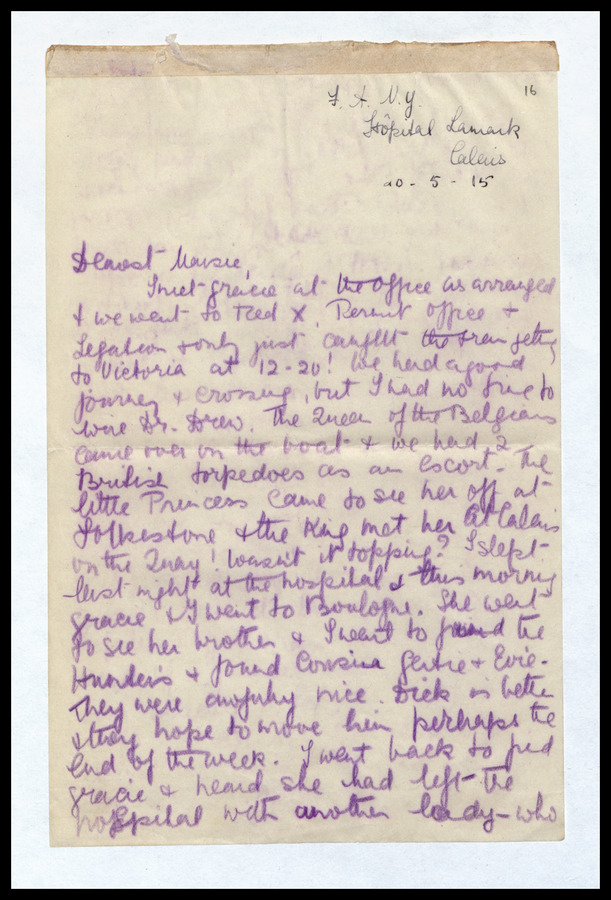 16
F. A. N. Y.
Hôpital Lamark
Calais
20 - 5 - 15
Dearest Maisie,
I met Gracie at the Office as arranged
& we went to Red X, Permit Office &
Legation & only just caught the train getting
to Victoria at 12-20! We had a good
journey & crossing, but I had no time to
wire Dr. Drew. The Queen of the Belgians
came over on the boat & we had 2
British torpedoes as an escort. The
little Princess came to see her off at
Folkestone & the King met her at Calais
on the Quay! Wasn't it topping? I slept
last night at the hospital & this morning
Gracie & I went to Boulogne. She went
to see her brother & I went to find the
Hunters & found Cousin Gertie & Evie.
They were awfully nice. Dick is better
& they hope to move him perhaps the
end of the week. I went back to find
Gracie & heard she had left the
hospital with another lady - who